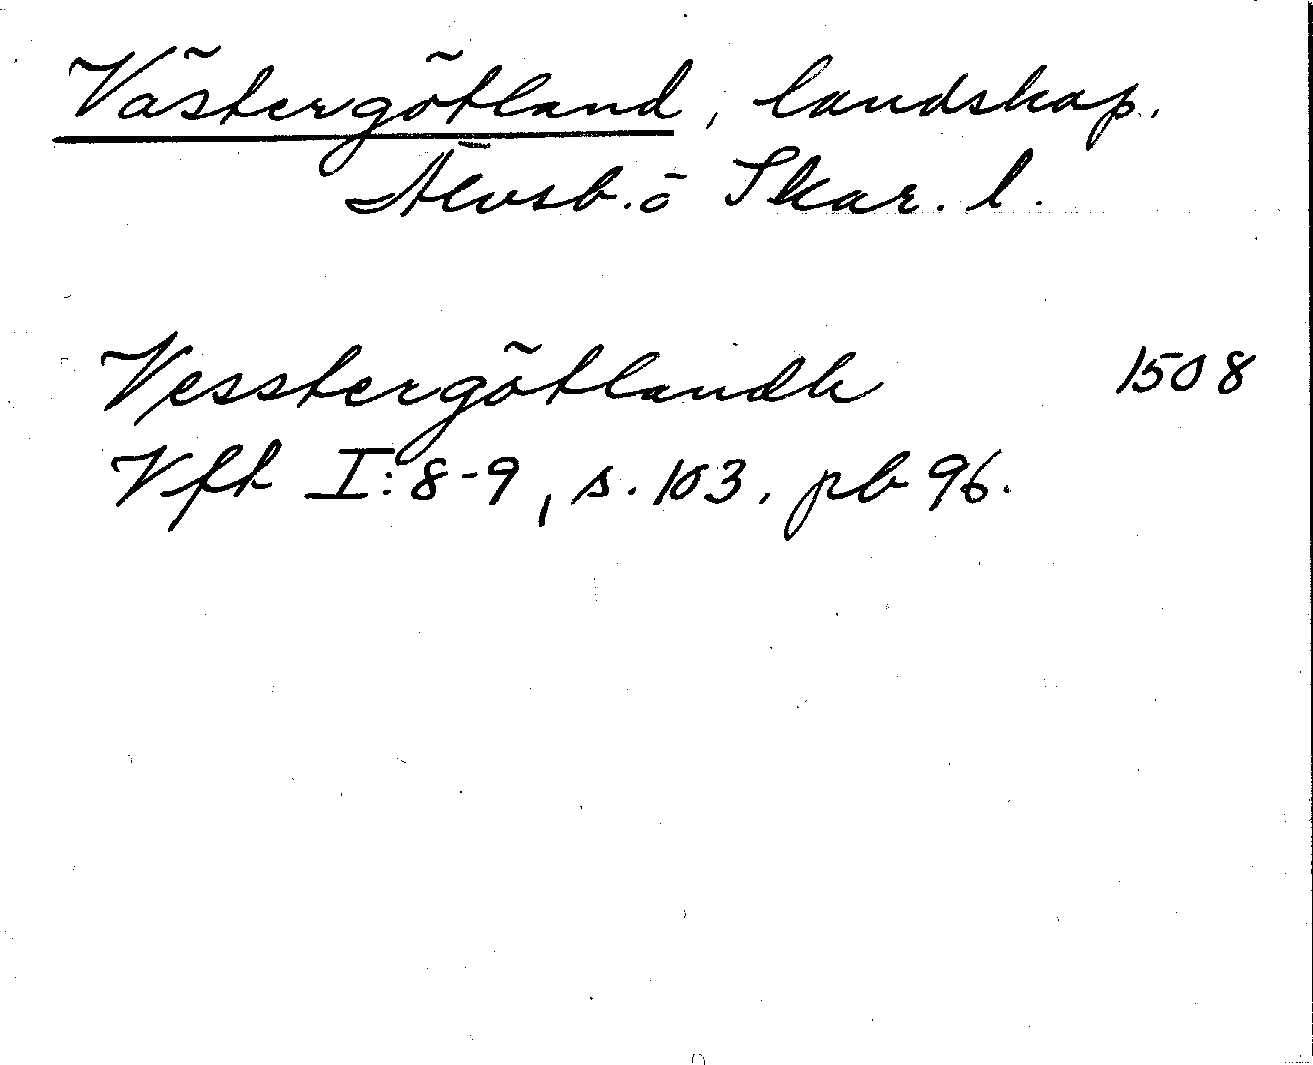 Västergötland, landskap.
Älvsb. ö Skar. l.
Vesstergötlandh 1508
Vft I:8-9, s. 103. pb 96.